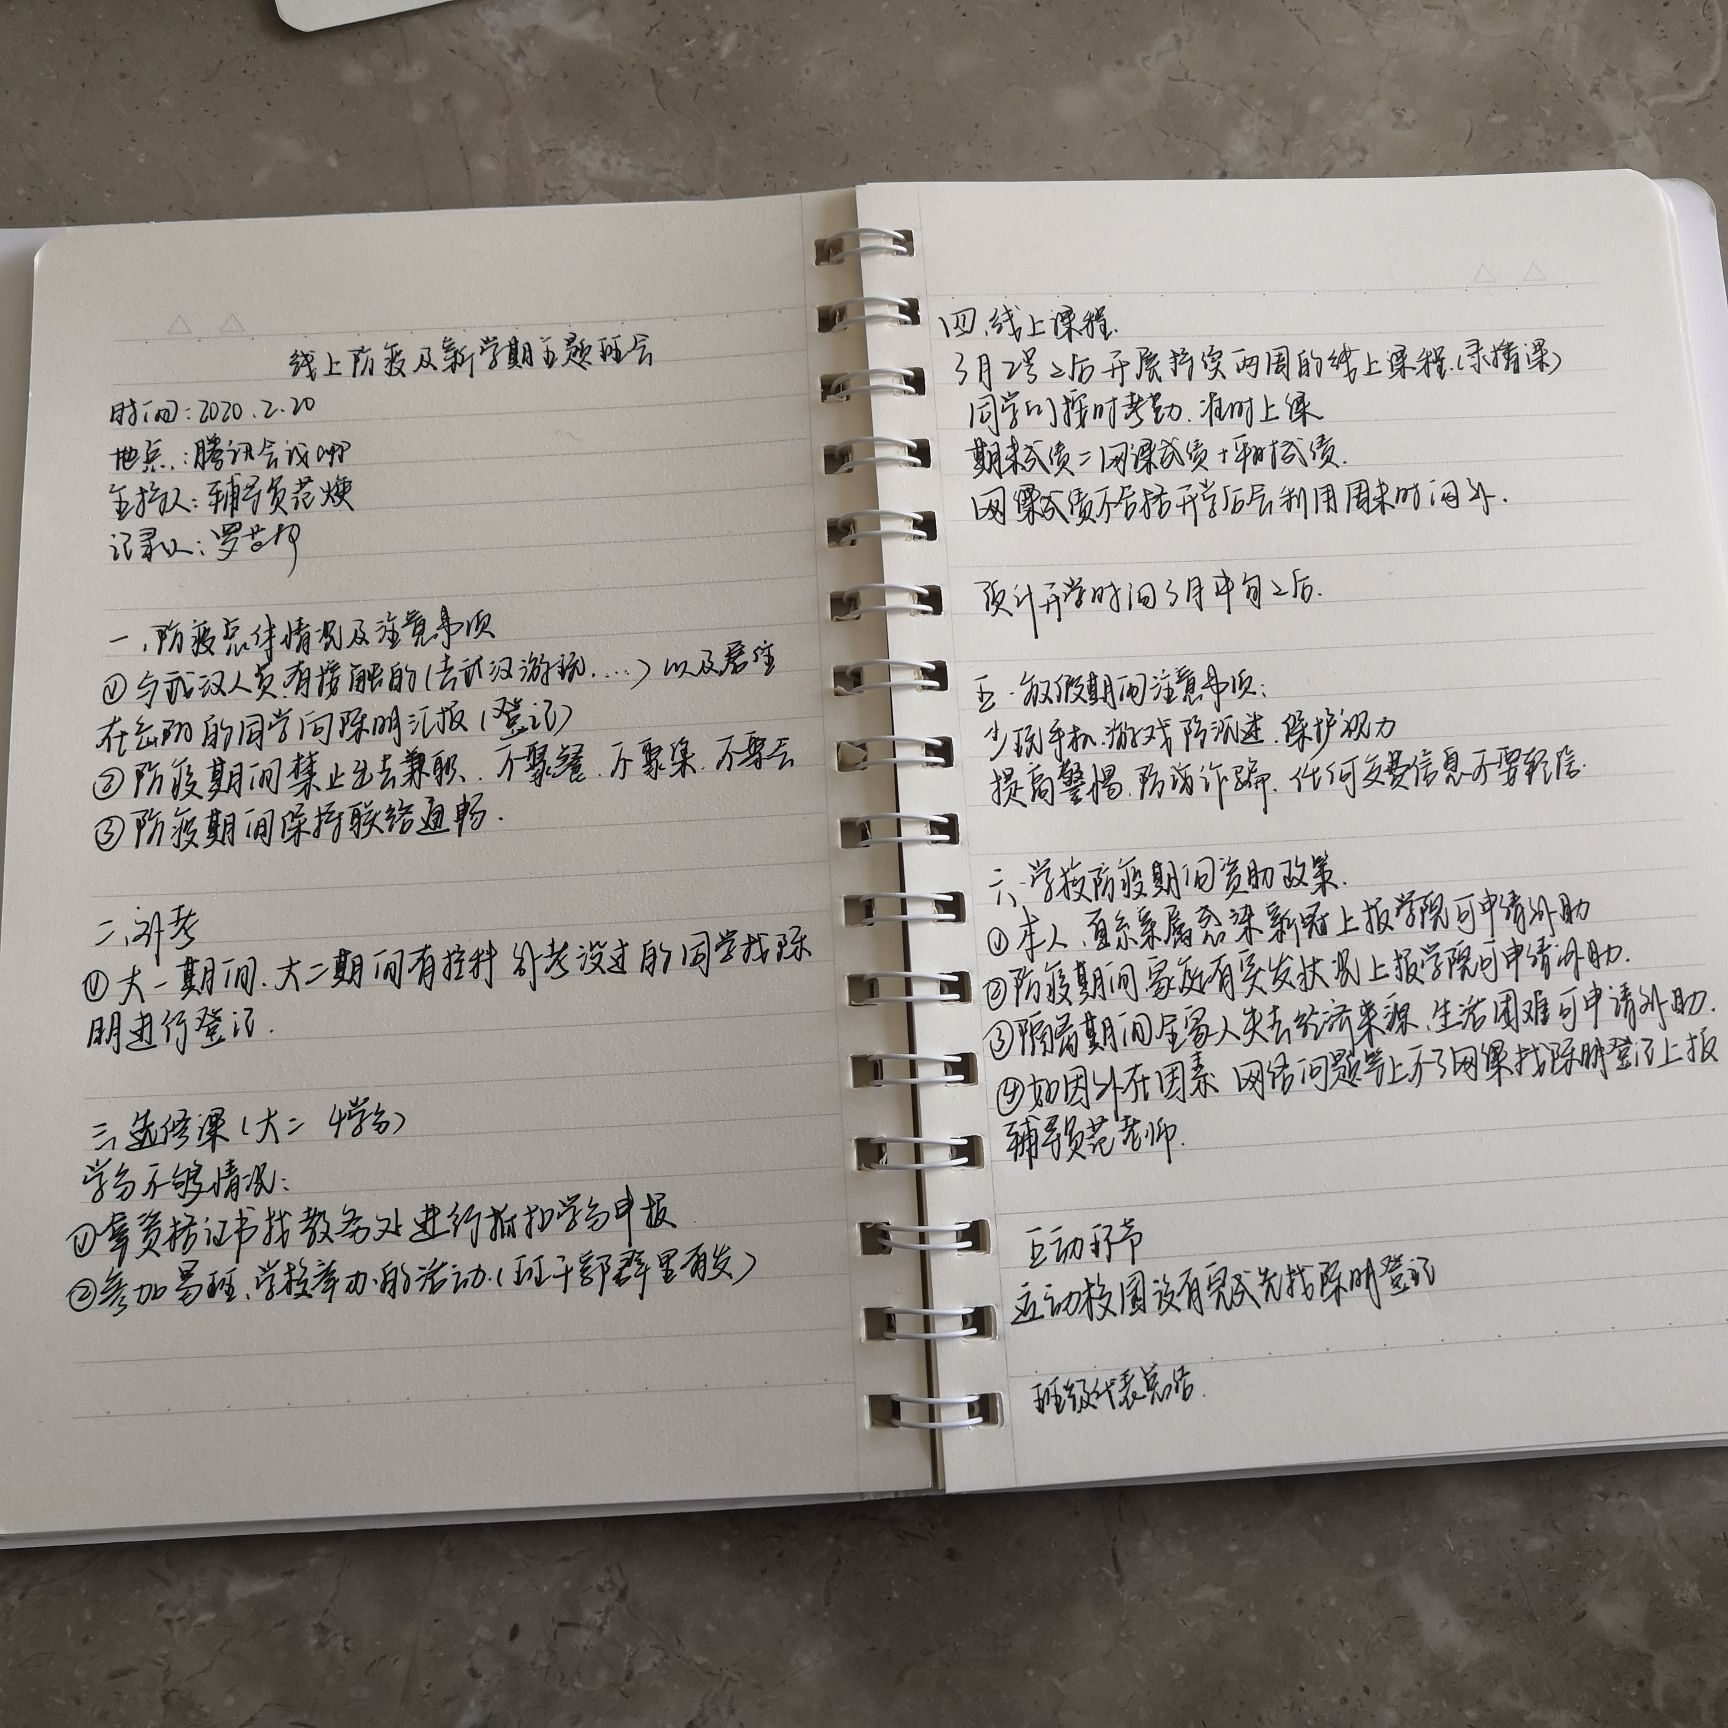 线上防疫及新学期主题班会
时间:2020.2.20
地点:腾讯会议app
主持人:辅导员范焕
记录人:罗
一、防疫总体情况及注意事项
①与武汉人员有接触的(去武汉游玩....)以及居住
在岳阳的同学向陈明汇报(登记)
②防疫期间禁止出去兼职、不聚餐.不聚集.不聚会
③防疫期间保持联络通畅.
二、补考
①大一期间.大二期间有挂科补考没过的同学找陈
明进行登记.
三、选修课(大二 4学分)
学分不够情况:
①拿资格证书找教务处进行抵扣学分申报
②参加易班、学校举办的活动.(班干部群里有发)
四、线上课程.
3月2号之后开展持续两周的线上课程.(录播课)
同学们按时考勤.准时上课
期末成绩=网课成绩+平时成绩.
网课成绩不合格开学后会利用周末时间补.
预计开学时间3月中旬之后.
五、放假期间注意事项:
少玩手机.游戏防沉迷.保护视力
提高警惕.防诈骗.任何交费信息不要轻信.
六、学校防疫期间资助政策.
①本人、直系亲属感染新冠上报学院可申请补助
②防疫期间家庭有突发状况上报学院可申请补助.
③隔离期间全家人失去经济来源、生活困难可申请补助.
④如因外在因素 网络问题等上不了网课找陈明登记上报
辅导员范老师.
互动环节
运动校园没有完成先找陈明登记
班级代表总结.